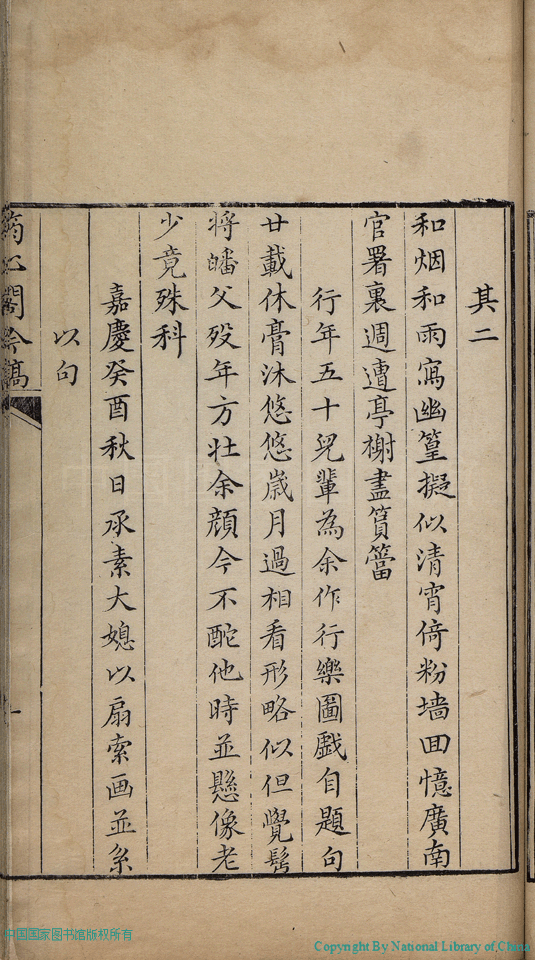 其二
和烟和雨寫幽篁擬似清宵倚粉墙回憶廣南
官署裏週遭亭榭盡篔簹
行年五十兒輩為余作行樂圖戲自題句
廿載休膏沐悠悠歲月過相看形略似但覺鬂
將皤父殁年方壮余顔今不酡他時並懸像老
少竟殊科
嘉慶癸酉秋日承素大媳以扇索画並系
以句
閣吟稿
中国国家图书馆版权所有
Copyright By National Library of China